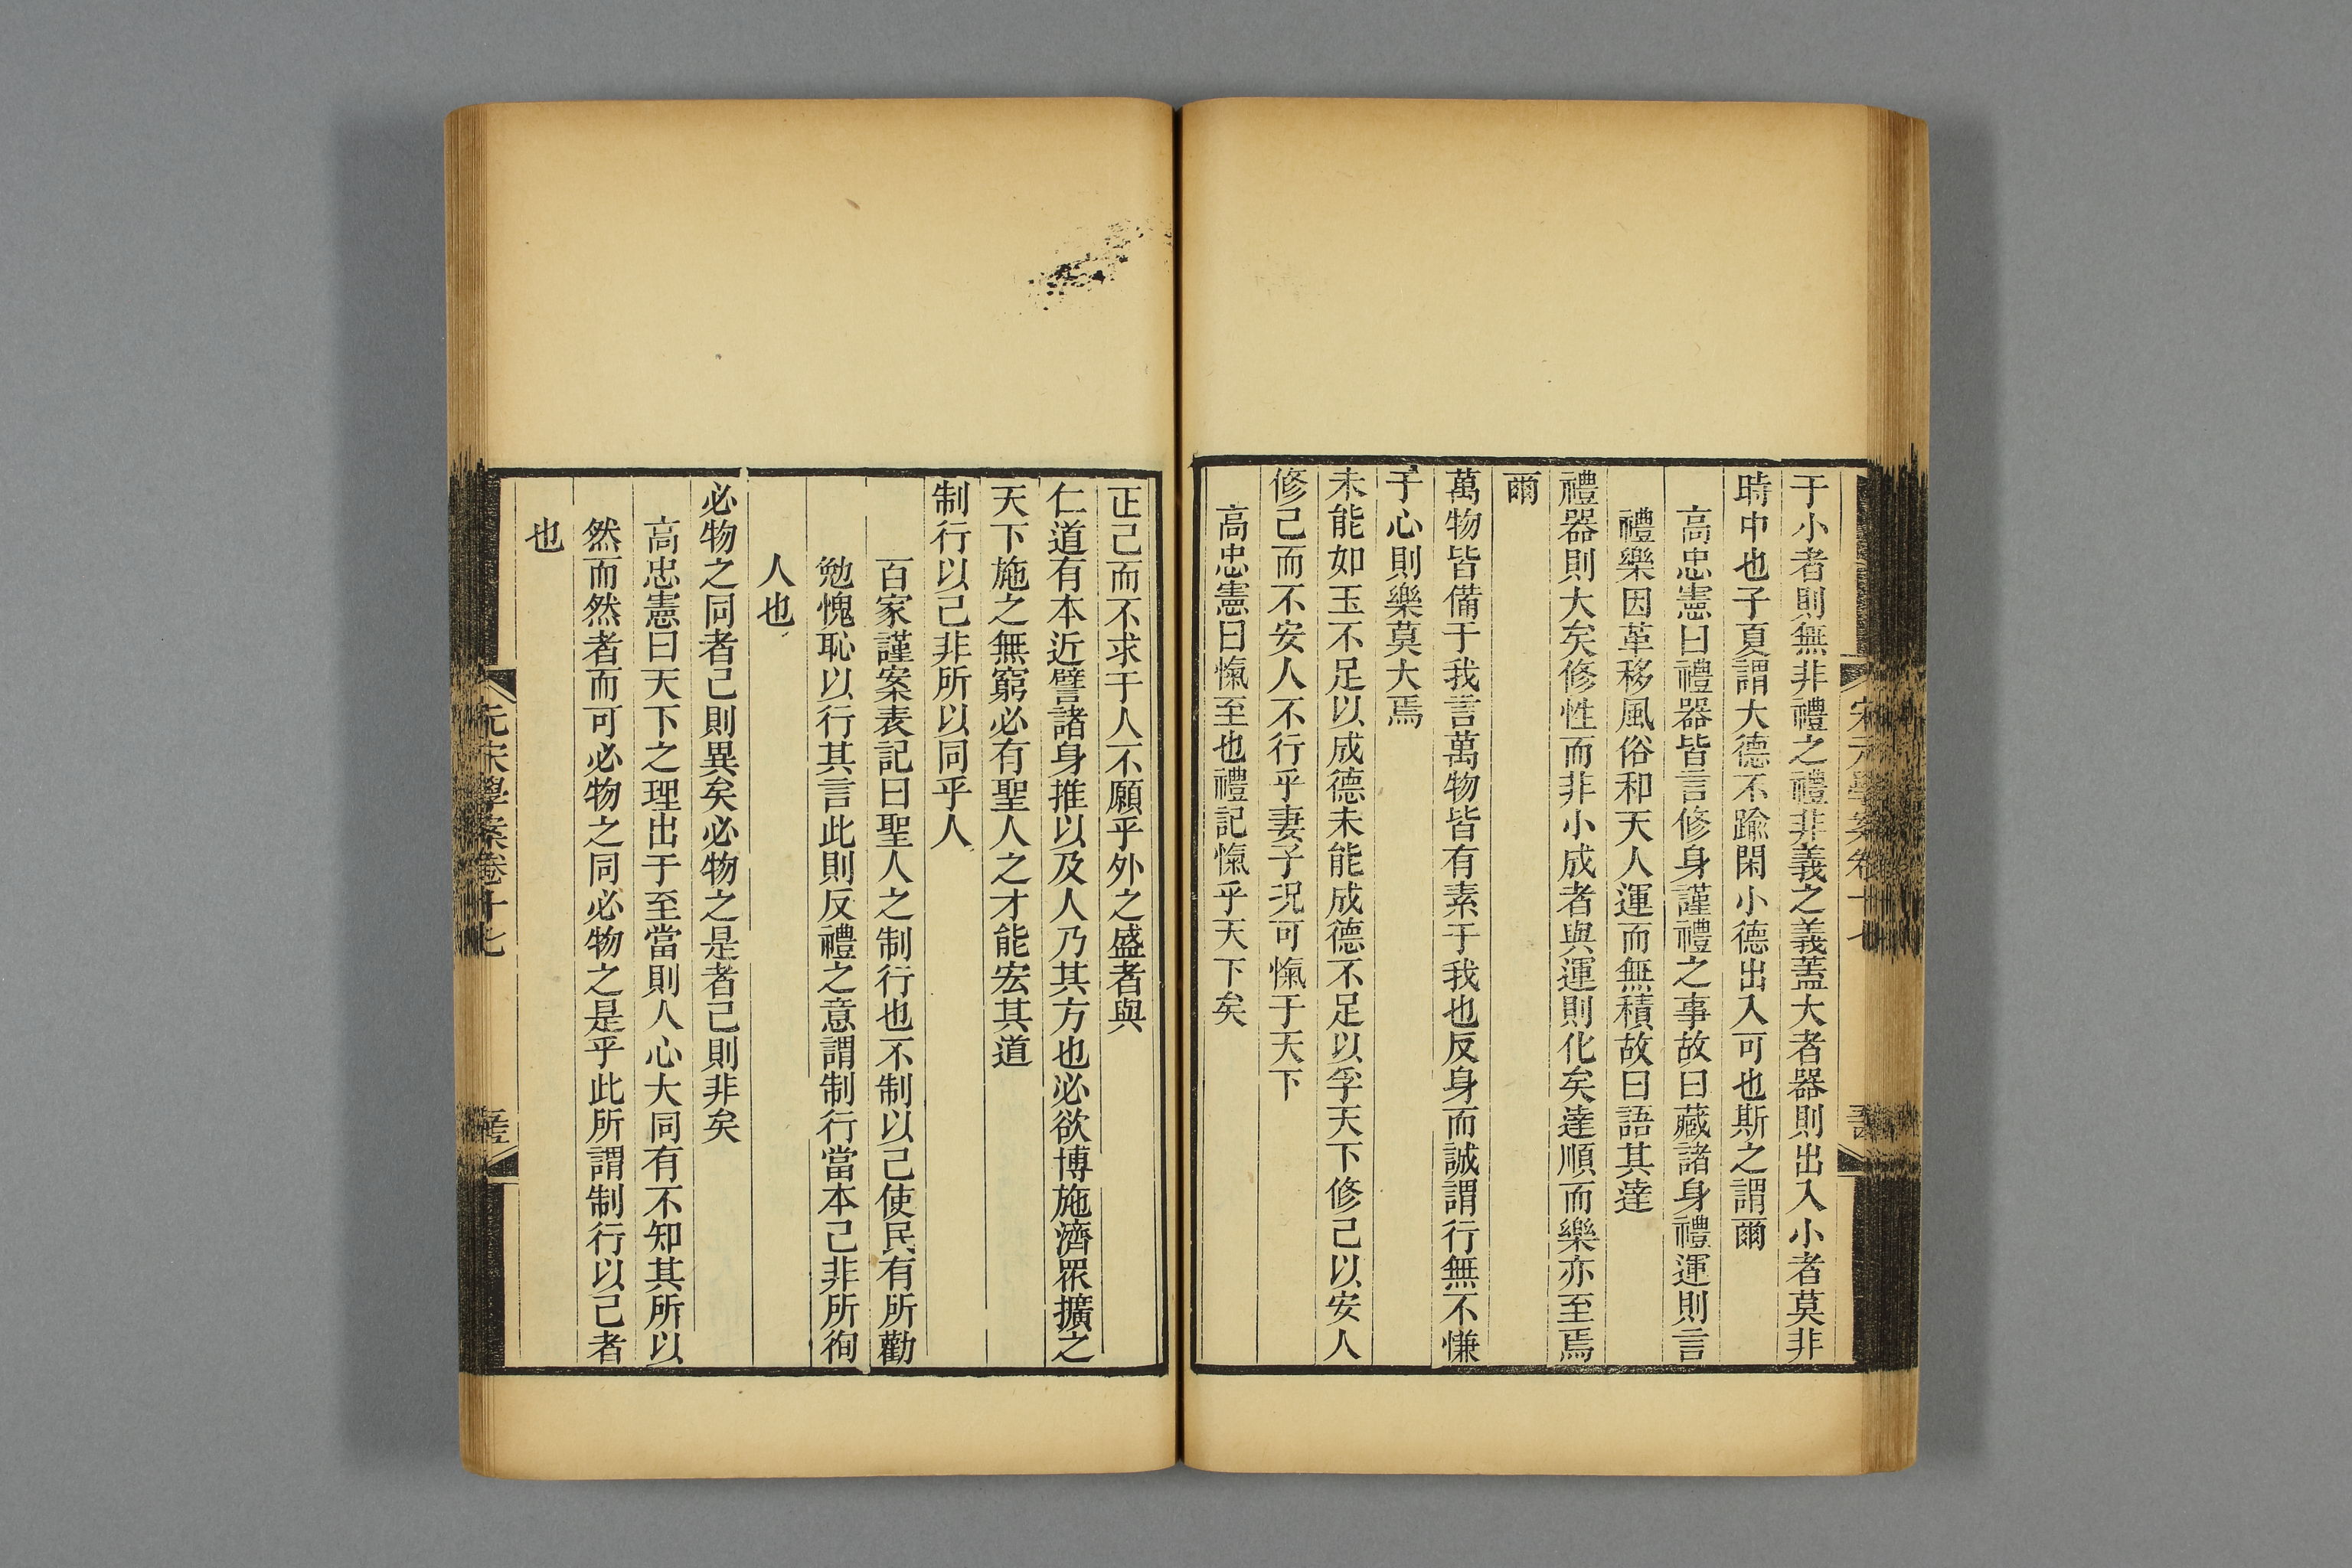 于小者則無非禮之禮非義之義蓋大者器則出入小者莫非
時中也子夏謂大德不踰閑小德出入可也斯之謂爾
高忠憲曰禮器皆言修身謹禮之事故曰藏諸身禮運則言
禮樂因革移風俗和天人運而無積故曰語其達
禮器則大矣修性而非小成者與運則化矣達順而樂亦至焉
爾
萬物皆備于我言萬物皆有素于我也反身而誠謂行無不慊
于心則樂莫大焉
未能如玉不足以成德未能成德不足以孚天下修己以安人
修己而不安人不行乎妻子況可愾于天下
高忠憲曰愾至也禮記愾乎天下矣
正己而不求于人不願乎外之盛者與
仁道有本近譬諸身推以及人乃其方也必欲博施濟眾擴之
天下施之無窮必有聖人之才能宏其道
制行以己非所以同乎人
百家謹案表記曰聖人之制行也不制以己使民有所勸
勉愧恥以行其言此則反禮之意謂制行當本己非所徇
人也
必物之同者己則異矣必物之是者己則非矣
高忠憲曰天下之理出于至當則人心大同有不知其所以
然而然者而可必物之同必物之是乎此所謂制行以己者
也
元宋學案卷十七